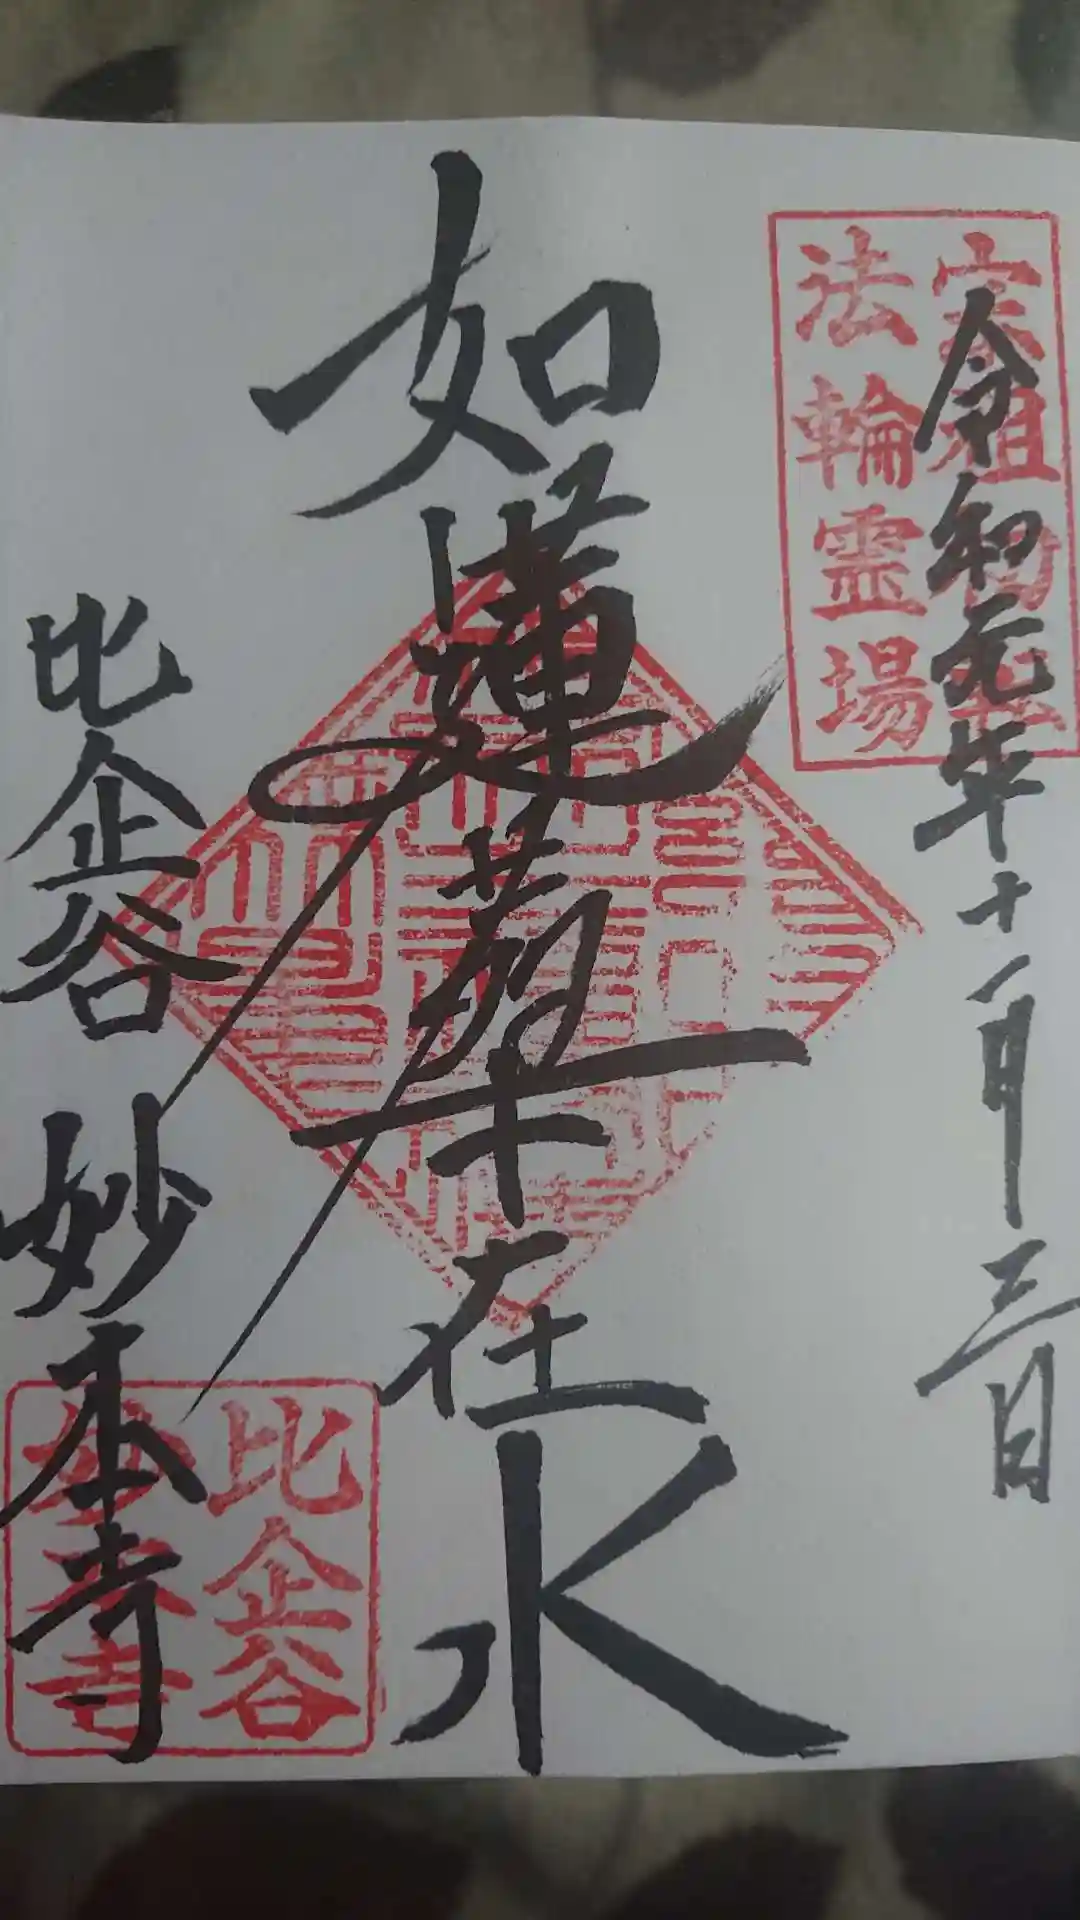 宗祖初転
法輪霊場
令和元年十一月三日
如蓮華在水
比企谷 妙本寺
比企谷
妙本寺